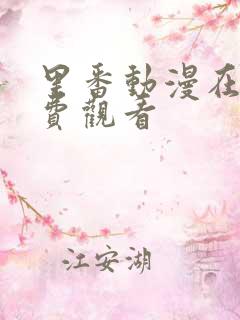 里番動漫在
費觀看
江安湖